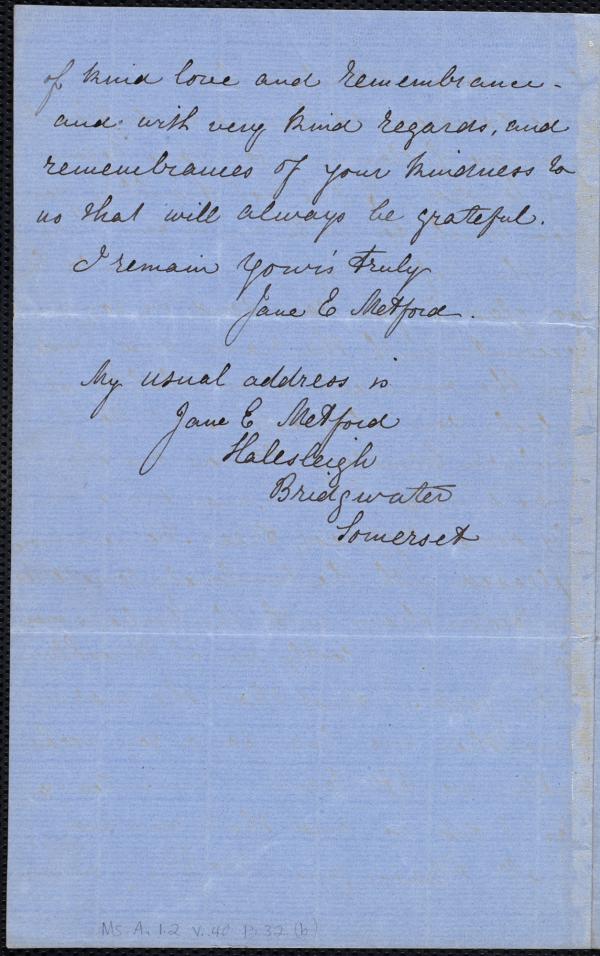 of kind love and remembrance -
and with very kind regards, and
remembrances of your kindness to
us that will always be grateful.
I remain Yours Truly
Jane E Metford.
My usual address is
Jane E Metford
Halesleigh
Bridgwater
Somerset
Ms. A. 1.2 v. 40 p. 32 (b)